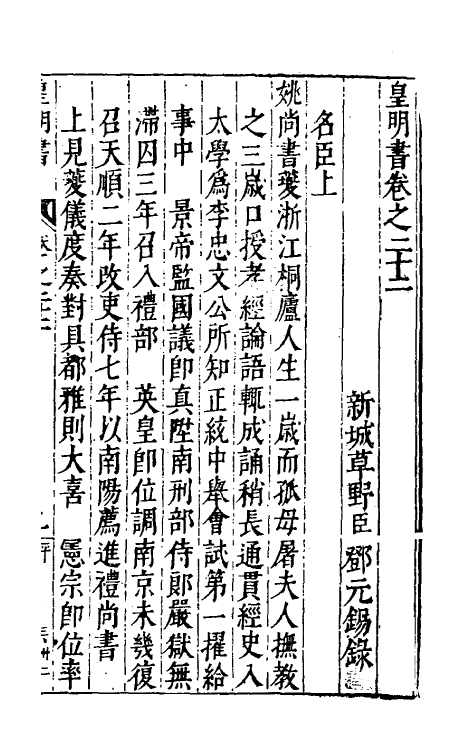 皇明書卷之二十二
新城草野臣 鄧元錫錄
名臣上
姚尚書夔浙江桐廬人生一歲而孤母屠夫人撫教
之三歲口授孝經論語輒成誦稍長通貫經史入
太學爲李忠文公所知正統中舉會試第一擢給
事中 景帝監國議卽真陞南刑部侍郎嚴獄無
滯囚三年召入禮部 英皇卽位調南京未幾復
召天順二年改吏侍七年以南陽薦進禮尚書
上見夔儀度奏對具都雅則大喜 憲宗卽位率
皇明書